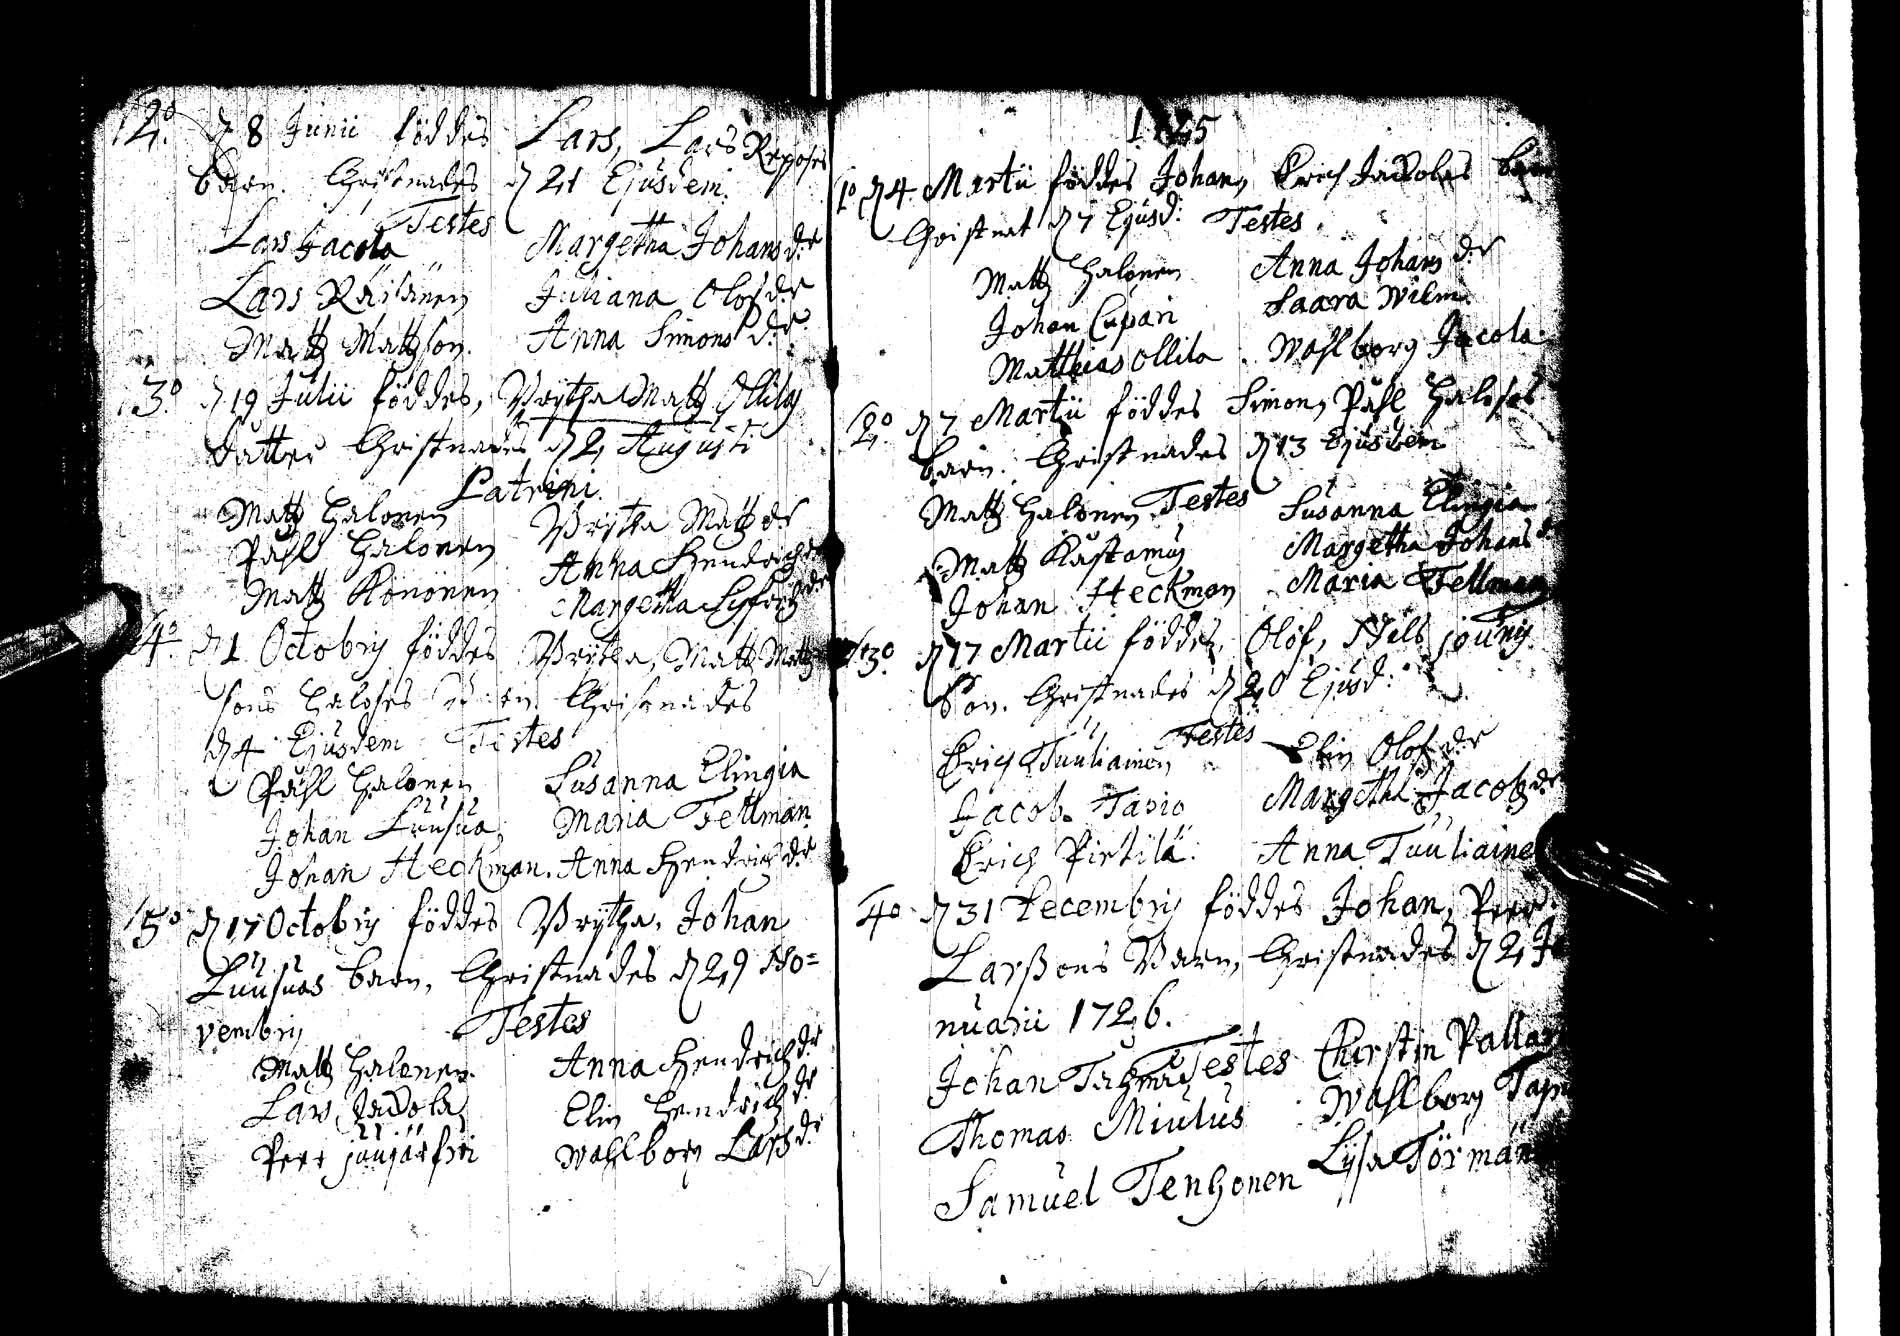 12º. d 8 Junii föddes Lars, Lars Reposes
barn. Christnades d 21 Ejusdem.
Testes
Lars Jacola Margetha Johans dr
Lars Räisänen Juliana Olofs dr
Matz Matzson. Anna Simons dr
13º. d 19 Julii föddes, Brytha Matz Ollilas
dutter Christnades d 2 Augusti
Patrini.
Matz Halonen Brytha Matz dr
Påhl Halonen Anna Hendrichs dr
Matz Könönen Margetha Sigfridz dr
14º d 1 Octobris föddes Brytha, Matz Matz
sons Haloses Christnades
d 4 Ejusdem Testes
Påhl Halonen Susanna Elingia
Johan Luusua Maria Fellman
Johan Heckman. Anna Hendrichs dr
15º d 17 Octobris föddes Brytha, Johan
Luusuas barn, Christnades d 29 No=
vembris Testes
Matz Halonen Anna Hendrichs dr
Lars Jacola Elin Hendrichs dr
Peer juujärfwi Wahlborg Lars dr
1725
1º d 4 Martii föddes Johan, Erich Jacolas barn
Christnat d 7 Ejusd: Testes.
Matz Halonen Anna Johans dr
Johan Cupari Saara Wilm
Matthias Ollila. Wahlborg Jacola
2º. d 7 Martii föddes Simon, Påhl Haloses
barn. Christnades d 13 Ejusdem
Testes
Matz Halonen Susanna Elingia
Matz Kastamus Margetha Johans dr
Johan Heckman Maria Fellman
3º. d 17 Martii föddes, Olof, Nils jounis
Son. Christnades d 20 Ejusd:
Testes
Erich Tuuliainen Elin Olofs dr
Jacob Tapio Margetha Jacobz dr
Erich Pirtilä. Anna Tuuliainen
4º d 31 Decembris föddes Johan, Peer
Larssons Barn, Christnades d 2 Ja
nuarii 1726.
Testes
Johan Chirstin Pallar
Thomas Miulus Wahlborg Tapi
Samuel Tenhonen Lysa Törmän